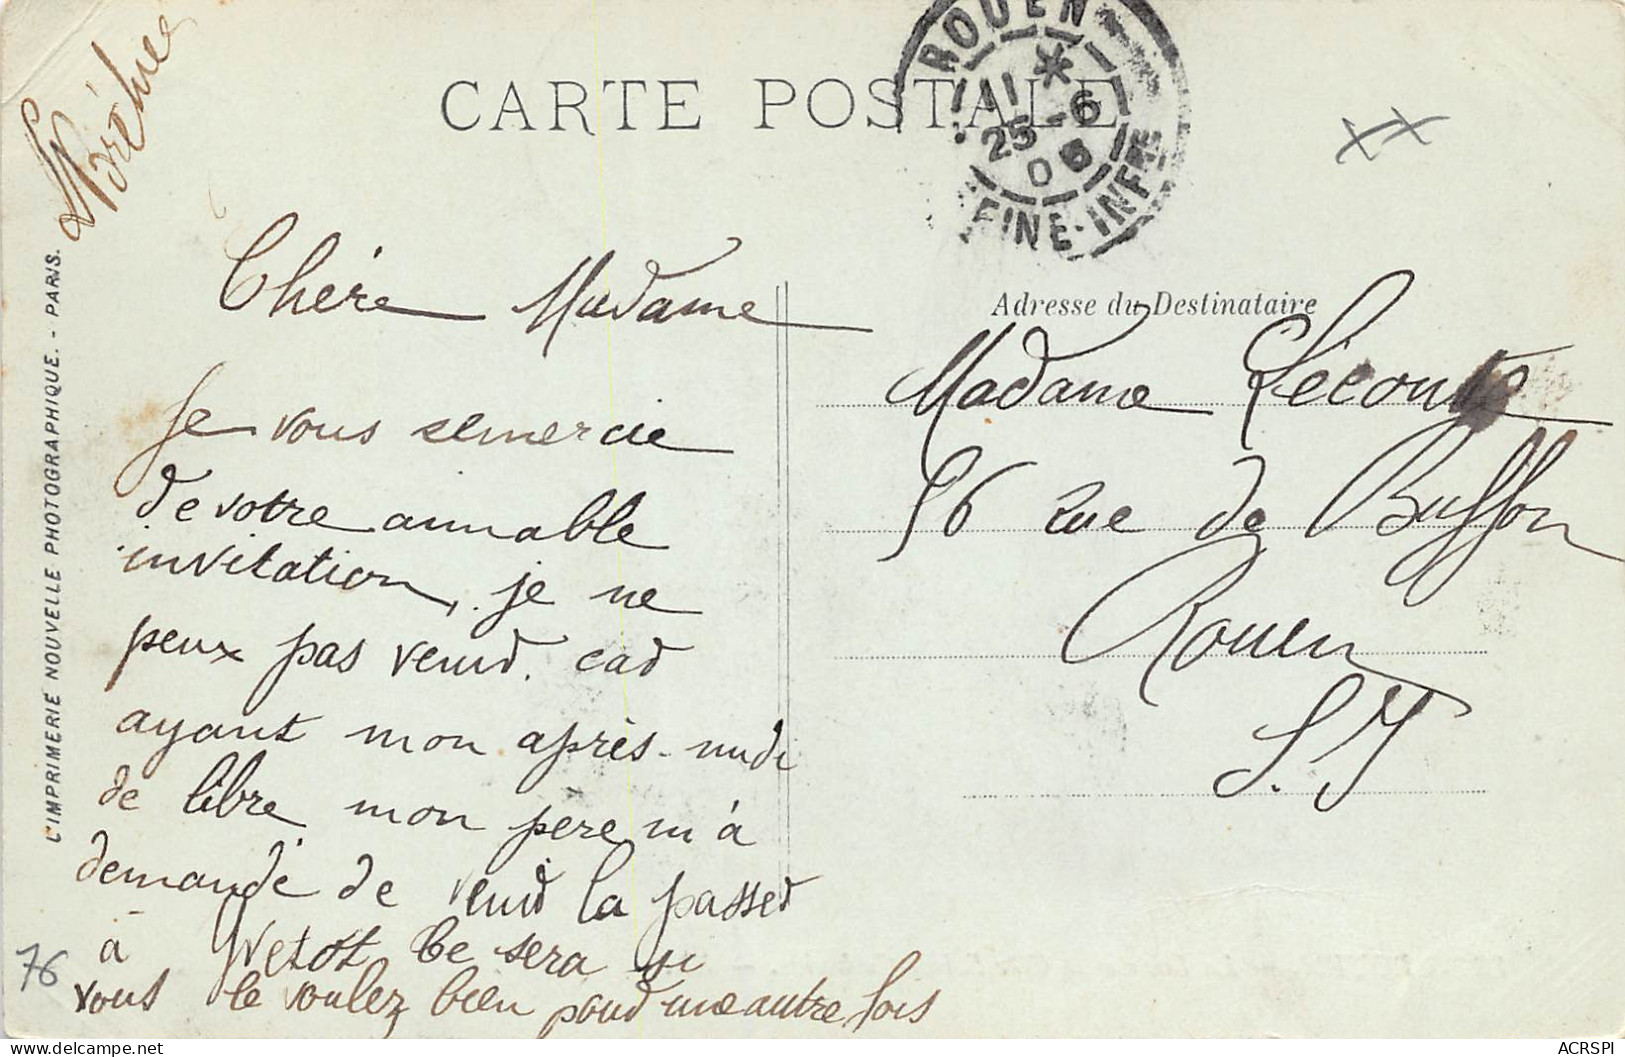 CARTE POSTALE
ROUEN
11 *
25 - 6
06
SEINE-INFRE
L'IMPRIMERIE NOUVELLE PHOTOGRAPHIQUE. - PARIS.
Chère Madame
Je vous remercie
de votre aimable
invitation, je ne
peux pas venir. car
ayant mon après-midi
de libre mon père m'a
demandé de venir la passer
à Yvetot Ce sera si
vous le voulez bien pour une autre fois
Adresse du Destinataire
Madame Lecomte
56 rue de Buffon
Rouen
S. I
76
ACRSPI